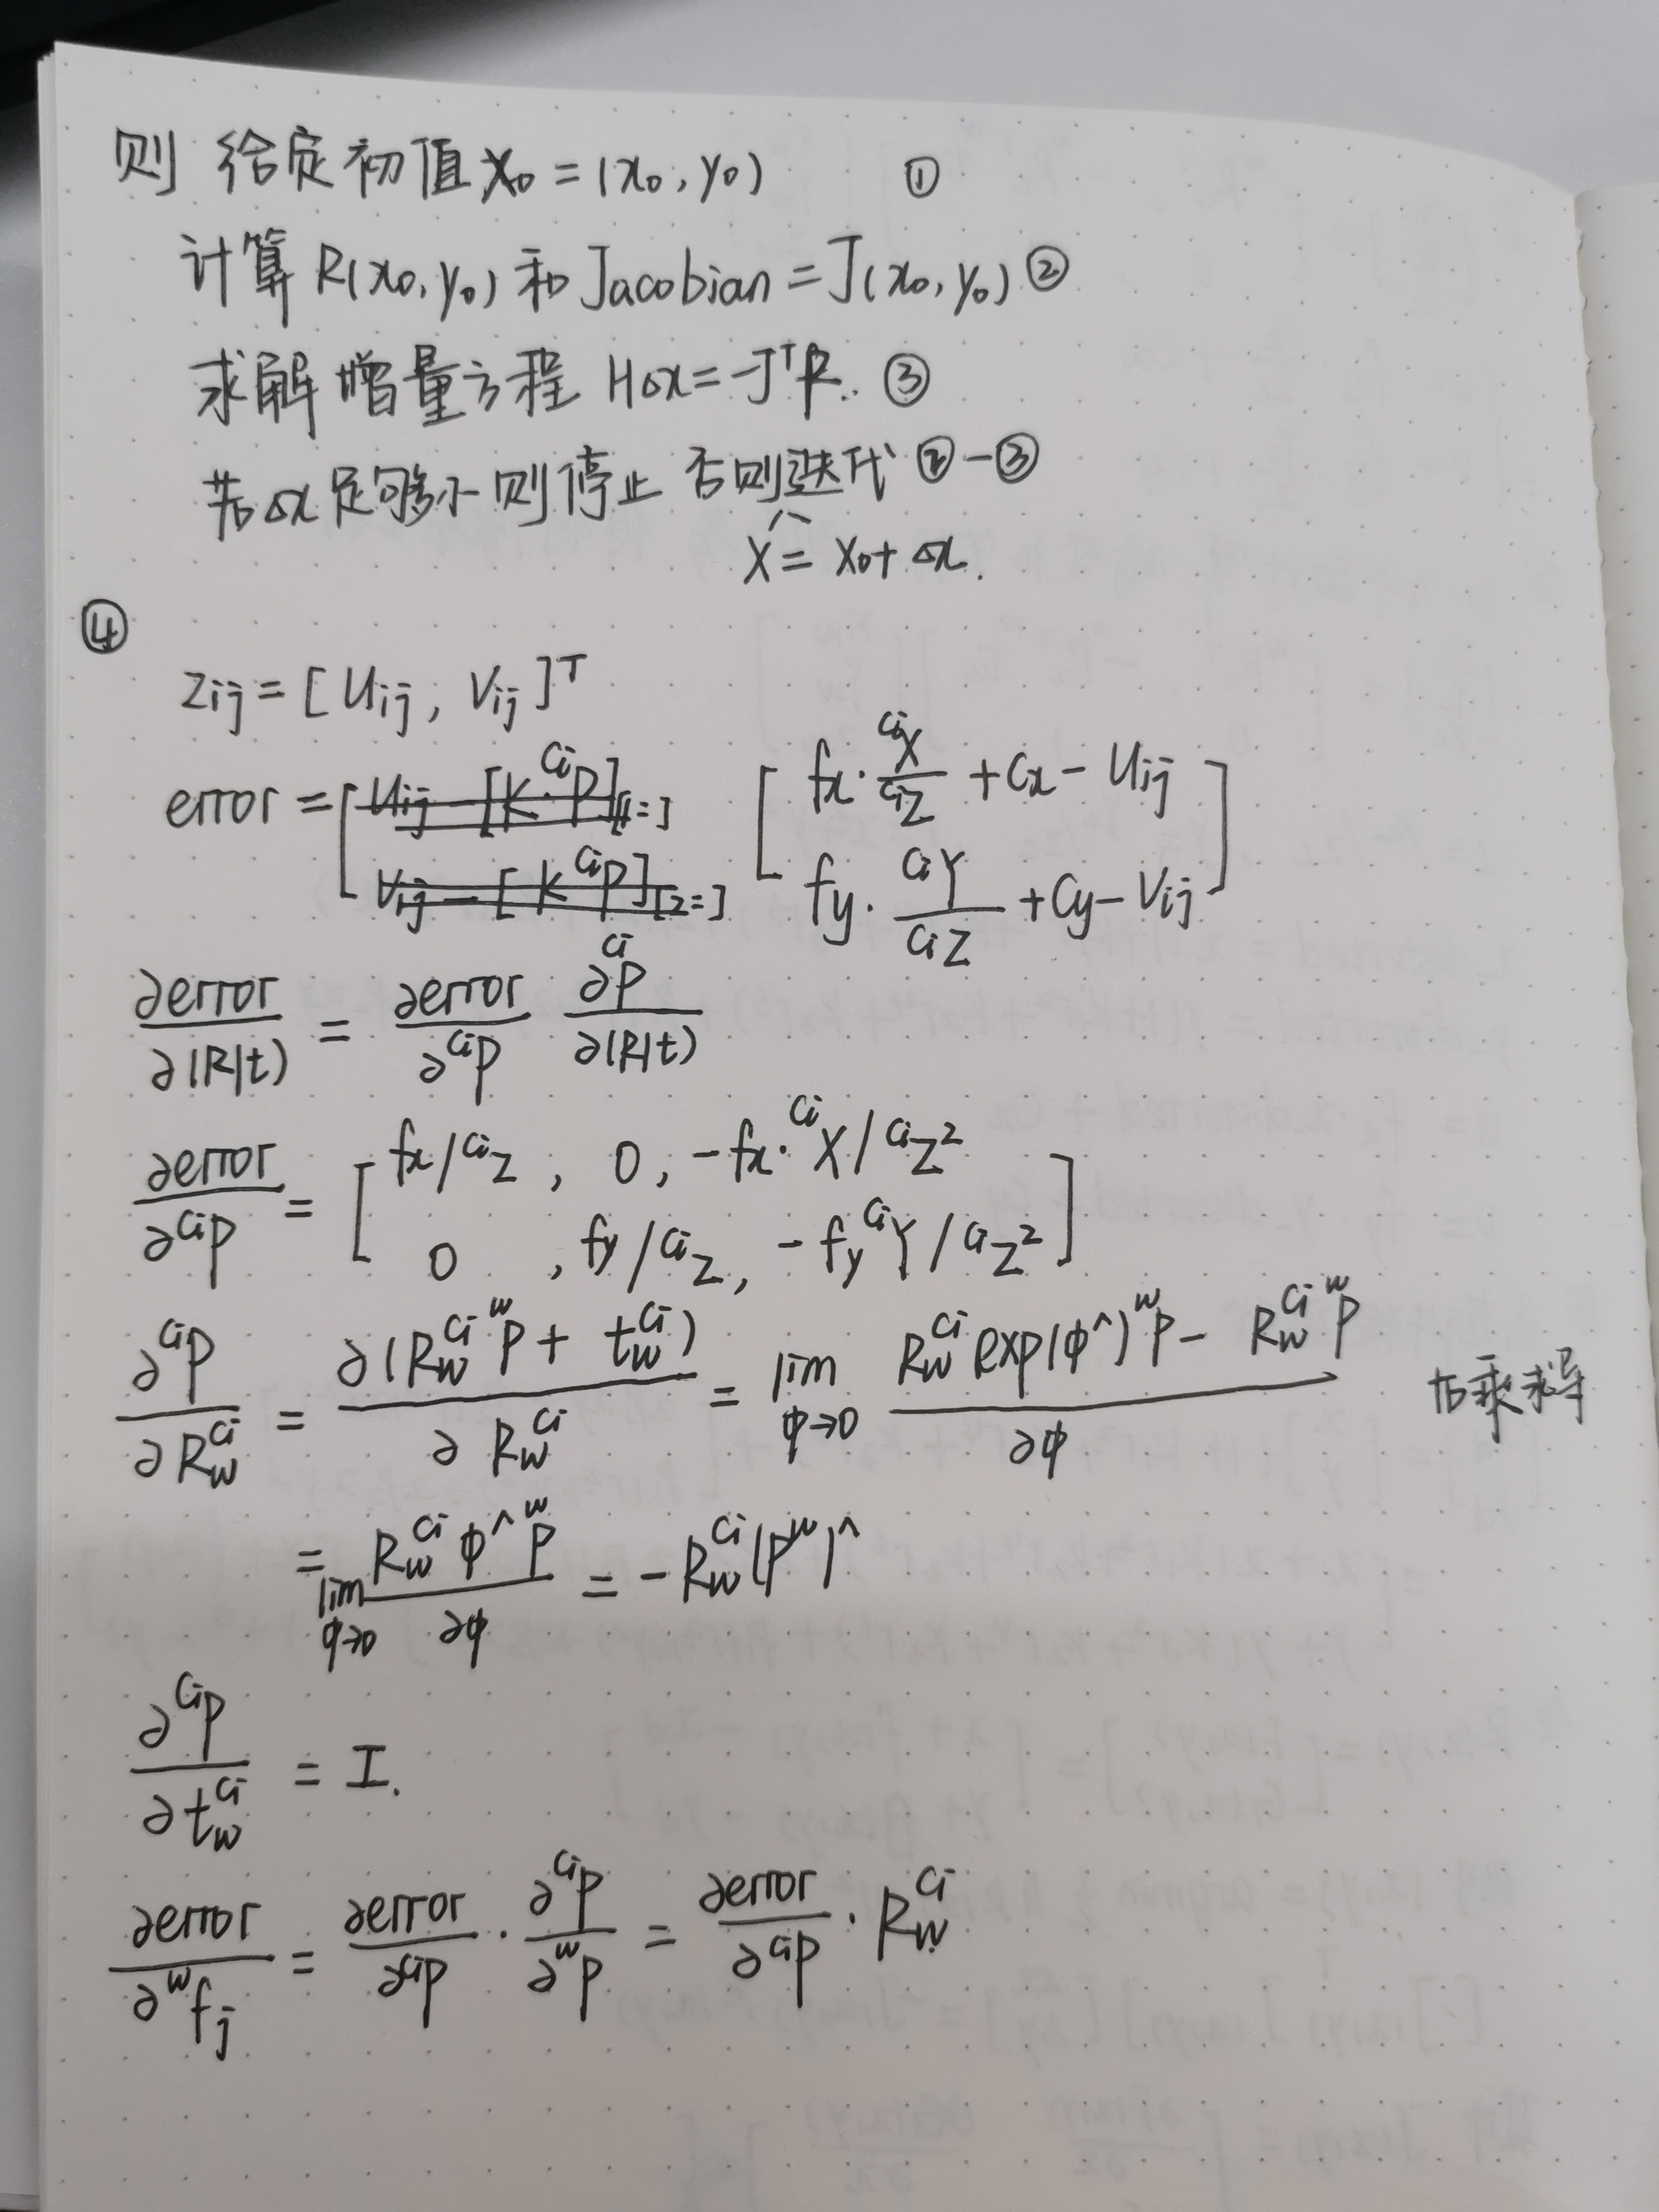 则 给定初值 X₀ = (x₀, y₀) ①
计算 R(x₀, y₀) 和 Jacobian = J(x₀, y₀) ②
求解增量方程 HΔx = -JᵀR. ③
若Δx足够小则停止 否则迭代 ②-③
X = X₀ + Δx.
④
Zij = [Uij, Vij]ᵀ
error = [ fx · ᶜⁱX/ᶜⁱZ + Cx - Uij
fy · ᶜⁱY/ᶜⁱZ + Cy - Vij ]
∂error/∂(R|t) = ∂error/∂ᶜⁱP ∂ᶜⁱP/∂(R|t)
∂error/∂ᶜⁱP = [ fx/ᶜⁱZ, 0, -fx·ᶜⁱX/ᶜⁱZ²
0, fy/ᶜⁱZ, -fyᶜⁱY/ᶜⁱZ² ]
∂ᶜⁱP/∂R_w^Ci = ∂(R_w^Ci ʷP + t_w^Ci)/∂R_w^Ci = lim φ→0 (R_w^Ci exp(φ^) ʷP - R_w^Ci ʷP)/∂φ 右乘求导
= lim φ→0 R_w^Ci φ^ ʷP/∂φ = -R_w^Ci (Pʷ)^
∂ᶜⁱP/∂t_w^Ci = I.
∂error/∂ʷfj = ∂error/∂ᶜⁱP · ∂ᶜⁱP/∂ʷP = ∂error/∂ᶜⁱP · R_w^Ci